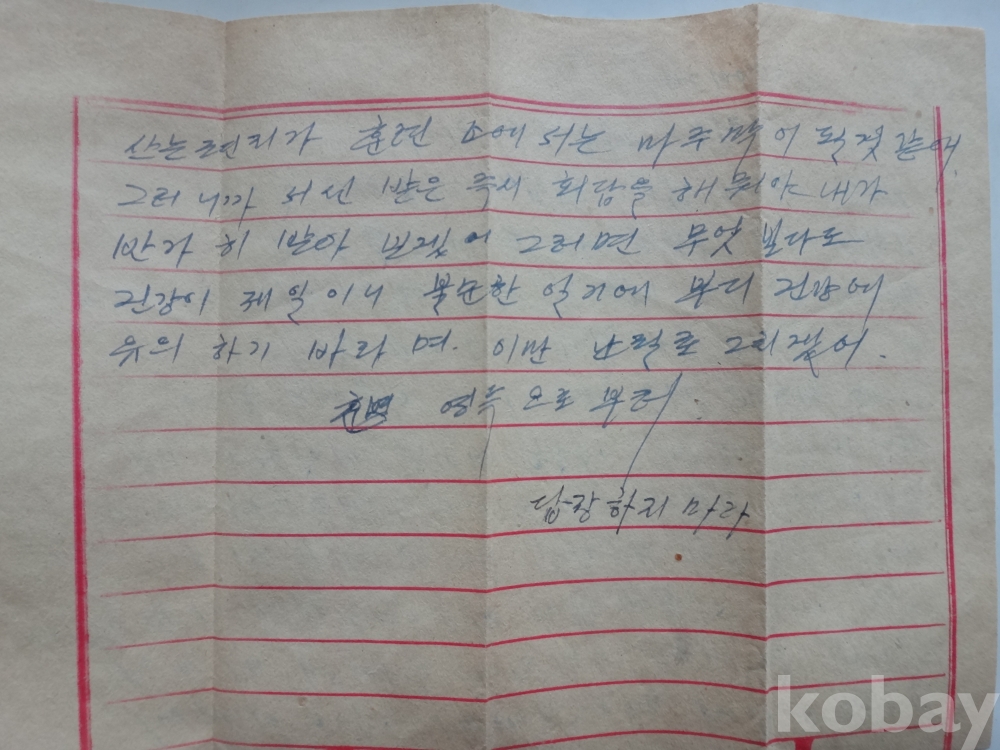 쓰는 편지가 훈련 소에서는 마주막이 될것 같애
그러니까 서신 받은 즉시 회답을 해 줘야 내가
반가히 받아 보겠어 그러면 무엇 보다도
건강이 제일이니 불순한 일기에 부디 건강에
유의 하기 바라며. 이만 난필로 그치겠어.
영득 으로 부터
답장하지 마라
kobay